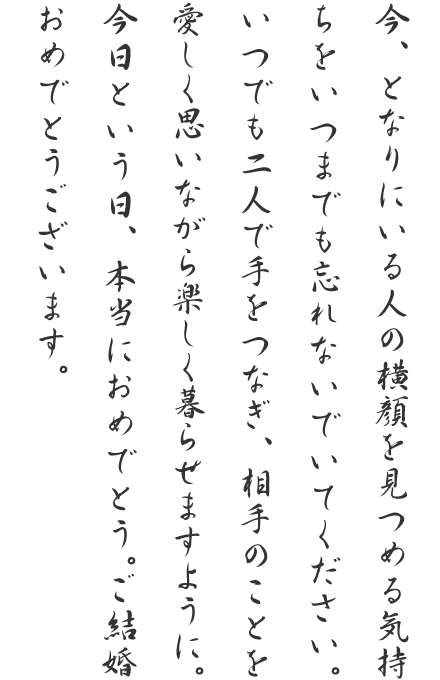 今、となりにいる人の横顔を見つめる気持
ちをいつまでも忘れないでいてください。
いつでも二人で手をつなぎ、相手のことを
愛しく思いながら楽しく暮らせますように。
今日という日、本当におめでとう。ご結婚
おめでとうございます。